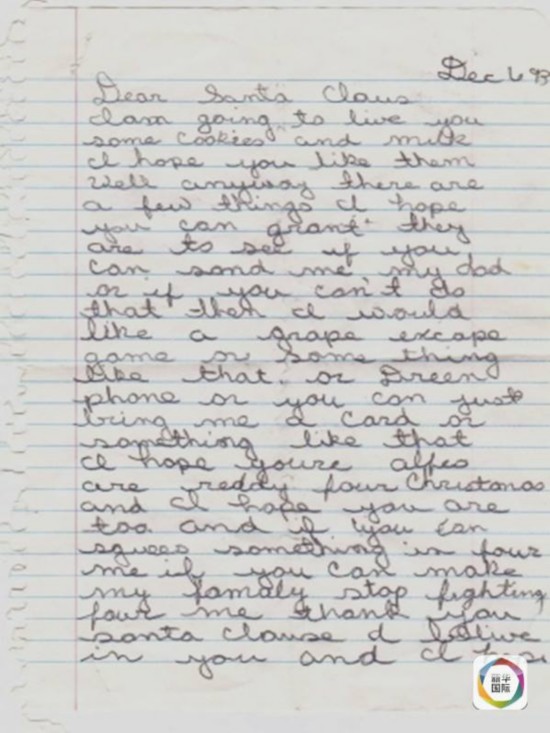 Dec 6 93
Dear Santa Claus
I am going to live you
some cookies and milk
I hope you like them
well anyway there are
a few things I hope
you can grant they
are to see if you
can sand me my dad
or if you can't do
that then I would
like a grape excape
game or some thing
like that. or Dreem
phone or you can just
bring me a card or
something like that
I hope youre alfes
are reddy four Christmas
and I hope you are
too. and if you can
squees something in four
me if you can make
my famaly stop fighting
four me thank you
santa clause I belive
in you and I
新华
国际